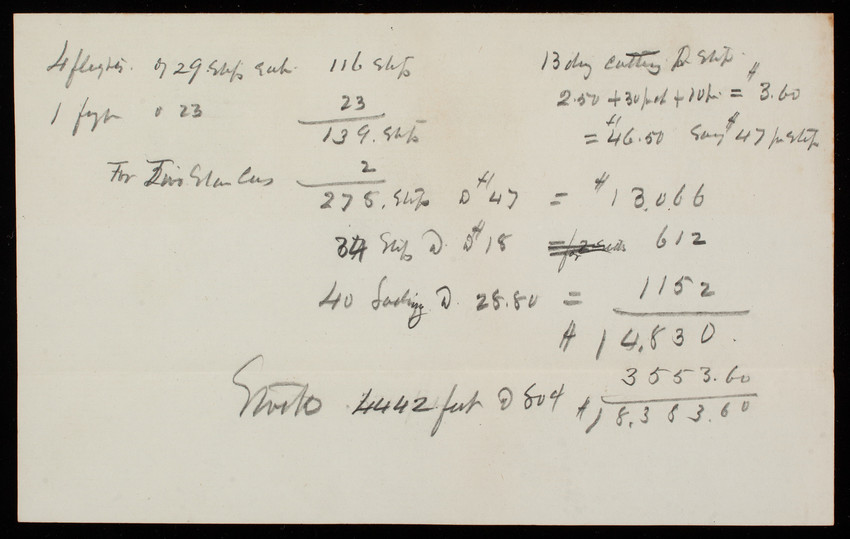 4 flights of 29 Steps each 116 Steps
1 flight of 23 23
139. Steps
For Two Stair Cases 2
278. Steps @ $47 = $13,066
34 Steps @ $18 612
40 Landing @ 28.80 = 1152
$14,830.
Stock 4442 feet @ 80¢ 3553.60
$18,383.60
13 day cutting @ Step
2.50 + 30 + 10 = $3.60
= $46.50 Say $47 pr Step